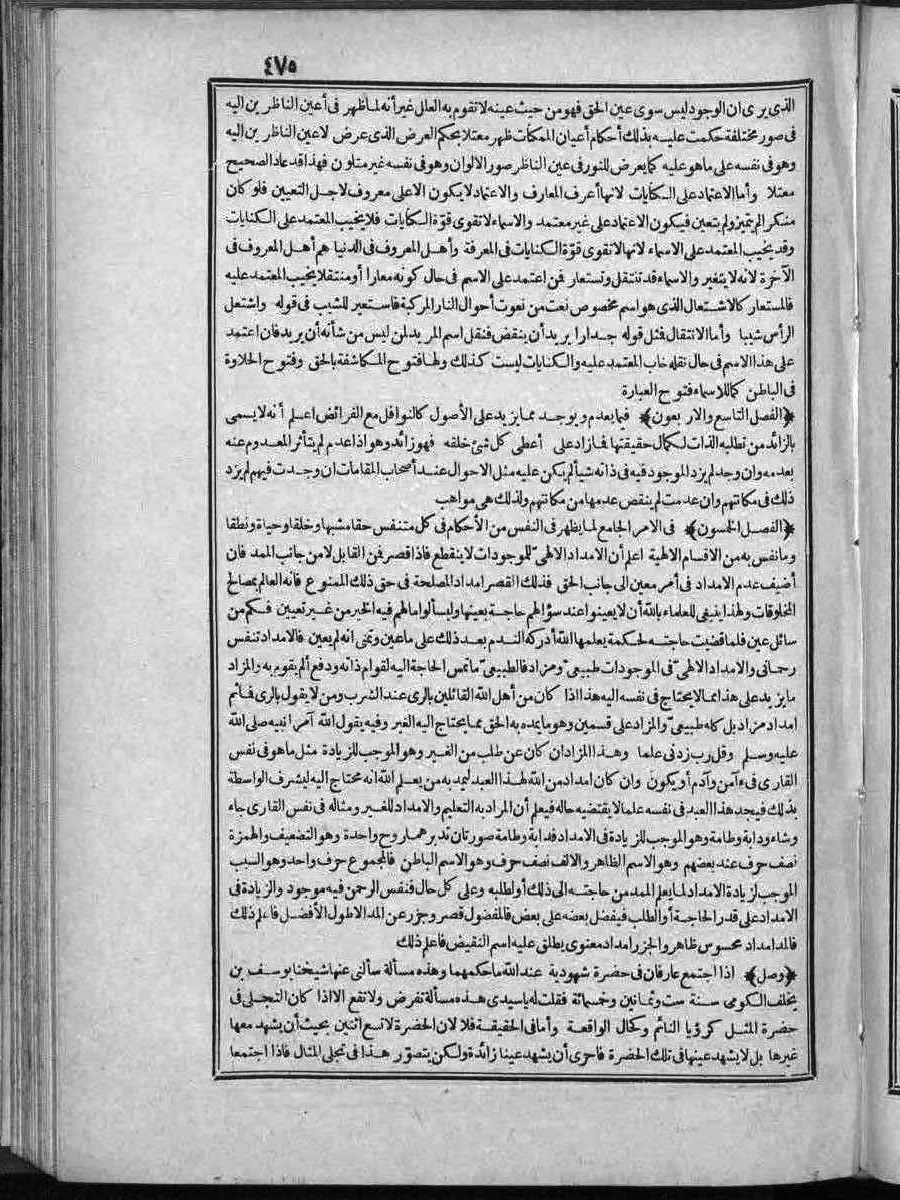 ٤٧٥
الذي يرى ان الوجود ليس سوى عين الحق فهو من حيث عينه لا تقوم به العلل غير أنه لما ظهر فى أعين الناظرين اليه
فى صور مختلفة حكمت عليه بذلك أحكام أعيان الممكنات ظهر معتلا بحكم العرض الذى عرض لاعين الناظرين اليه
وهو فى نفسه على ما هو عليه كما يعرض للنور فى عين الناظر صور الالوان وهو فى نفسه غير متلون فهذا قد عاد الصحيح
معتلا وأما الاعتماد على الكنايات لانها أعرف المعارف والاعتماد لا يكون الا على معروف لاجل التعيين فلو كان
منكرا لم يتميز ولم يتعين فيكون الاعتماد على غير معتمد والاسماء لا تقوى قوّة الكنايات فلا يخيب المعتمد على الكنايات
وقد يخيب المعتمد على الاسماء لانها لا تقوى قوّة الكنايات فى المعرفة وأهل المعروف فى الدنيا هم أهل المعروف فى
الآخرة لانه لا يتغير والاسماء قد تنتقل وتستعار فمن اعتمد على الاسم فى حال كونه معارا أو منتقلا يخيب المعتمد عليه
فالمستعار كالاشتعال الذى هو اسم مخصوص نعت من نعوت أحوال النار المركبة فاستعير للشيب فى قوله واشتعل
الرأس شيبا وأما الانتقال فمثل قوله جدارا يريد أن ينقض فنقل اسم المريد لمن ليس من شأنه أن يريد فان اعتمد
على هذا الاسم فى حال نقله خاب المعتمد عليه والكنايات ليست كذلك ولها فتوح المكاشفة بالحق وفتوح الحلاوة
فى الباطن كما للاسماء فتوح العبارة
﴿الفصل التاسع والاربعون﴾ فيما يعدم ويوجد مما يزيد على الأصول كالنوافل مع الفرائض اعلم أنه لا يسمى
بالزائد من تطلبه الذات لكمال حقيقتها فما زاد على أعطى كل شئ خلقه فهو زائد وهو اذا عدم لم يتأثر المعدوم عنه
بعدمه وان وجد لم يزد الموجود فيه فى ذاته شيأ لم يكن عليه مثل الاحوال عند أصحاب المقامات ان وجدت فيهم لم يزد
ذلك فى مكانتهم وان عدمت لم ينقص عدمها من مكانتهم ولذلك هى مواهب
﴿الفصل الخمسون﴾ فى الامر الجامع لما يظهر فى النفس من الأحكام فى كل متنفس حقا مشبها وخلقا وحياة ونطقا
وما نفس به من الاقسام الالهية اعلم أن الامداد الالهىّ للموجودات لا ينقطع فاذا قصر فمن القابل لا من جانب الممد فان
أضيف عدم الامداد فى أمر معين الى جانب الحق فذلك القصر امداد المصلحة فى حق ذلك الممنوع فانه العالم بمصالح
المخلوقات ولهذا ينبغى للعلماء بالله أن لا يعينوا عند سؤالهم حاجة بعينها وليسألوا ما لهم فيه الخير من غير تعيين فكم من
سائل عين فلما قضيت حاجته لحكمة يعلمها الله أدركه الندم بعد ذلك على ما عين وتمنى انه لم يعين فالامداد تنفس
رحمانى والامداد الالهىّ فى الموجودات طبيعىّ ومزاد فالطبيعىّ ما تمس الحاجة اليه لقوام ذاته ودفع ألم يقوم به والمزاد
ما يزيد على هذا مما لا يحتاج فى نفسه اليه هذا اذا كان من أهل الله القائلين بالرى عند الشرب ومن لا يقول بالرى فما ثم
امداد مزاد بل كله طبيعىّ والمزاد على قسمين وهو ما يمده به الحق مما يحتاج اليه الغير وفيه يقول الله آمرا نبيه صلى الله
عليه وسلم وقل رب زدنى علما وهذا المزاد ان كان عن طلب من الغير وهو الموجب للزيادة مثل ما هو فى نفس
القارى فى ءامن وآدم أو يكون وان كان امداد من الله لهذا العبد ليمد به من يعلم الله انه محتاج اليه ليشرف الواسطة
بذلك فيجد هذا العبد فى نفسه علما لا يقتضيه حاله فيعلم أن المراد به التعليم والامداد للغير ومثاله فى نفس القارى جاء
وشاء ودابة وطامة وهو الموجب للزيادة فى الامداد فدابة وطامة صورتان تدبرهما روح واحدة وهو التضعيف والهمزة
نصف حرف عند بعضهم وهو الاسم الظاهر والالف نصف حرف وهو الاسم الباطن فالمجموع حرف واحد وهو السبب
الموجب لزيادة الامداد لما يعلم الممد من حاجته الى ذلك أو لطلبه وعلى كل حال فنفس الرحمن فيه موجود والزيادة فى
الامداد على قدر الحاجة أو الطلب فيفضل بعضه على بعض فالمفضول قصر وجزر عن المد الاطول الأفضل فاعلم ذلك
فالمد امداد محسوس ظاهر والجزر امداد معنوى يطلق عليه اسم النقيض فاعلم ذلك
﴿وصل﴾ اذا اجتمع عارفان فى حضرة شهودية عند الله ما حكمهما وهذه مسألة سألنى عنها شيخنا يوسف بن
يخلف الكومى سنة ست وثمانين وخمسمائة فقلت له يا سيدى هذه مسألة تفرض ولا تقع الا اذا كان التجلى فى
حضرة المثل كرؤيا النائم وكحال الواقعة وأما فى الحقيقة فلا لان الحضرة لا تسع اثنين بحيث أن يشهد معها
غيرها بل لا يشهد عينها فى تلك الحضرة فاحرى أن يشهد عينا زائدة ولكن يتصوّر هذا فى تجلى المثال فاذا اجتمعا